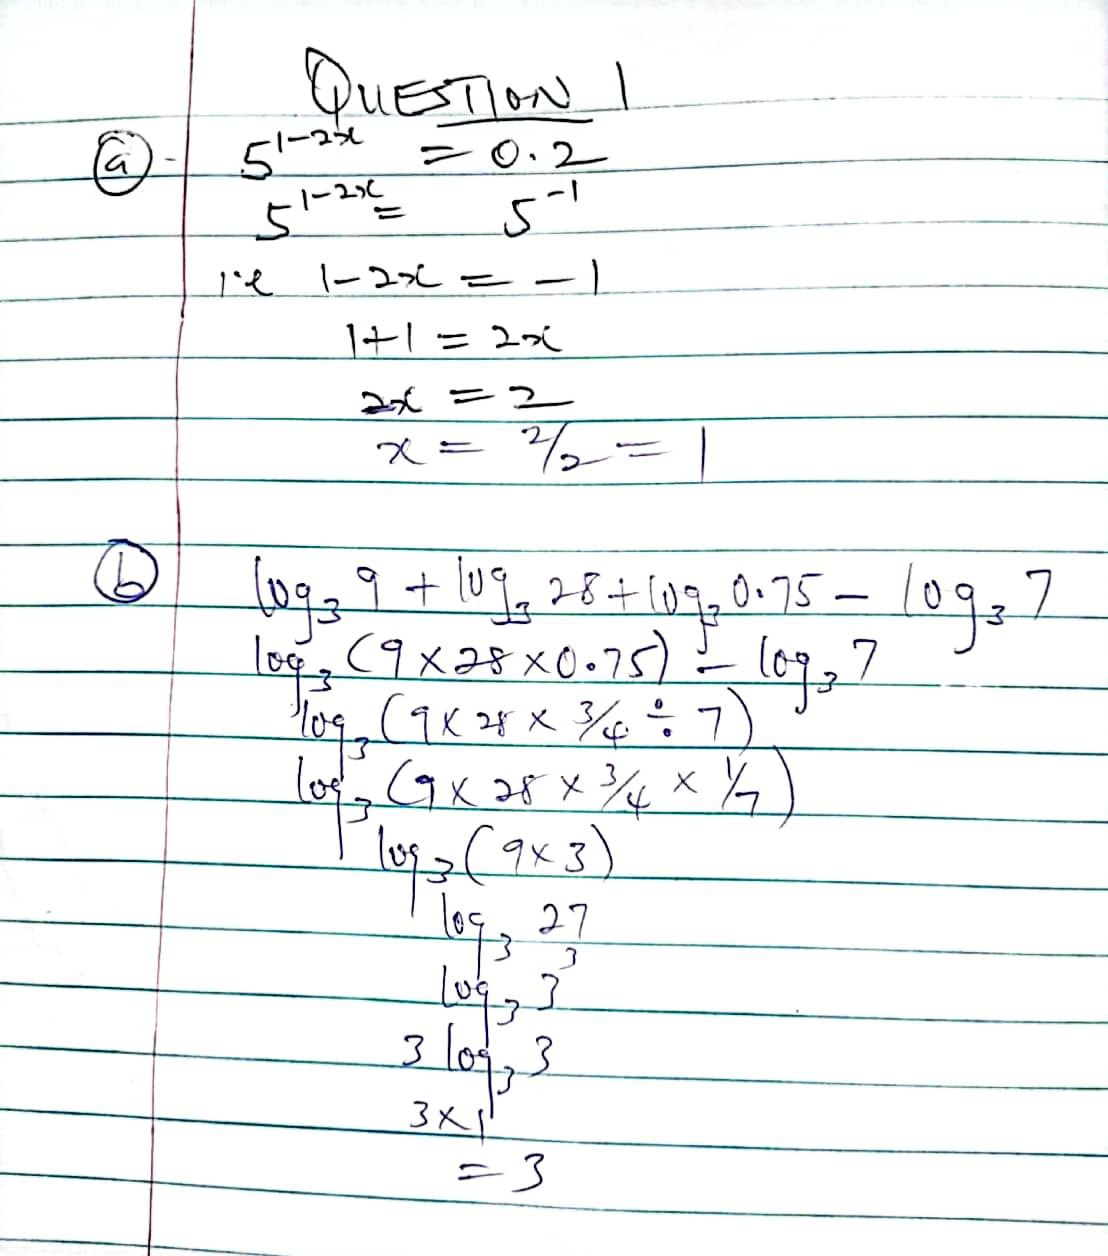 QUESTION 1
(a) - 5^{1-2x} = 0.2
5^{1-2x} = 5^{-1}
i.e 1-2x = -1
1+1 = 2x
2x = 2
x = 2/2 = 1
(b) log₃ 9 + log₃ 28 + log₃ 0.75 - log₃ 7
log₃ (9 × 28 × 0.75) - log₃ 7
log₃ (9 × 28 × 3/4 ÷ 7)
log₃ (9 × 28 × 3/4 × 1/7)
log₃ (9 × 3)
log₃ 27
log₃ 3³
3 log₃ 3
3 × 1
= 3